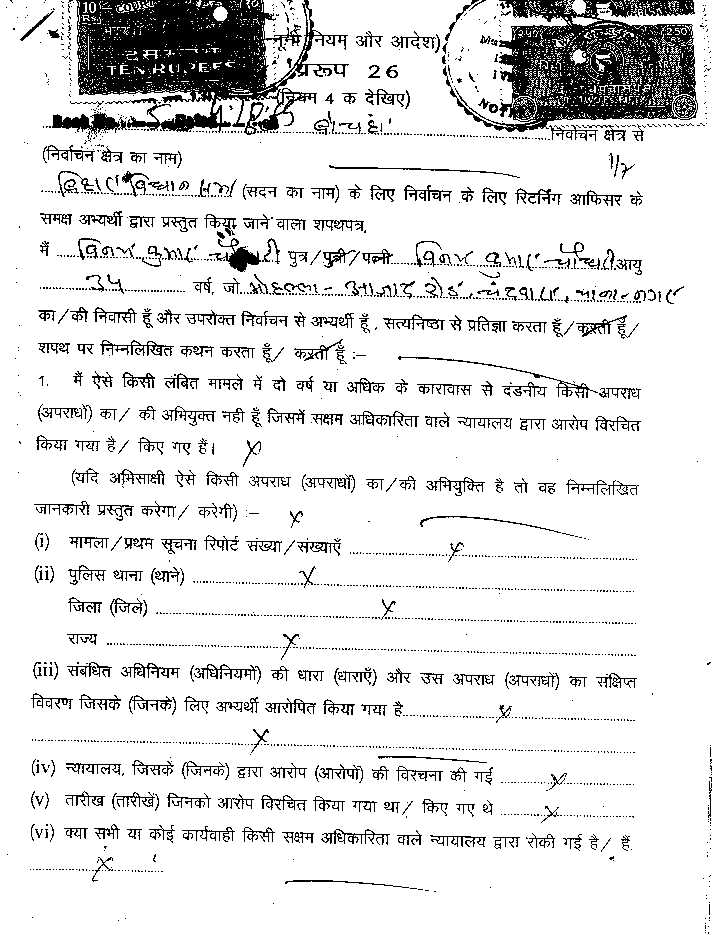 10
दस रुपये
TEN RUPEES
नियम और आदेश)
प्ररूप 26
(नियम 4 क देखिए)
Book No.
NOTA
बोचहाँ निर्वाचन क्षेत्र से
(निर्वाचन क्षेत्र का नाम)
1/7
विधान सभा (सदन का नाम) के लिए निर्वाचन के लिए रिटर्निंग आफिसर के
समक्ष अभ्यर्थी द्वारा प्रस्तुत किया जाने वाला शपथपत्र,
मैं कुमार पुत्र/पुत्री/पत्नी कुमार चौधरी आयु
वर्ष, जो मोहल्ला - आजाद रोड, थाना - नगर
का/की निवासी हूँ और उपरोक्त निर्वाचन से अभ्यर्थी हूँ, सत्यनिष्ठा से प्रतिज्ञा करता हूँ/करती हूँ/
शपथ पर निम्नलिखित कथन करता हूँ/ करती हूँ :–
1. मैं ऐसे किसी लंबित मामले में दो वर्ष या अधिक के कारावास से दंडनीय किसी अपराध
(अपराधों) का/ की अभियुक्त नही हूँ जिसमें सक्षम अधिकारिता वाले न्यायालय द्वारा आरोप विरचित
किया गया है/ किए गए हैं। X
(यदि अभिसाक्षी ऐसे किसी अपराध (अपराधों) का/की अभियुक्ति है तो वह निम्नलिखित
जानकारी प्रस्तुत करेगा/ करेगी) :– X
(i) मामला/प्रथम सूचना रिपोर्ट संख्या/संख्याएँ X
(ii) पुलिस थाना (थाने) X
जिला (जिले) X
राज्य X
(iii) संबंधित अधिनियम (अधिनियमों) की धारा (धाराएँ) और उस अपराध (अपराधों) का संक्षिप्त
विवरण जिसके (जिनके) लिए अभ्यर्थी आरोपित किया गया है X
X
(iv) न्यायालय, जिसके (जिनके) द्वारा आरोप (आरोपों) की विरचना की गई X
(v) तारीख (तारीखें) जिनको आरोप विरचित किया गया था/ किए गए थे X
(vi) क्या सभी या कोई कार्यवाही किसी सक्षम अधिकारिता वाले न्यायालय द्वारा रोकी गई है/ हैं
X